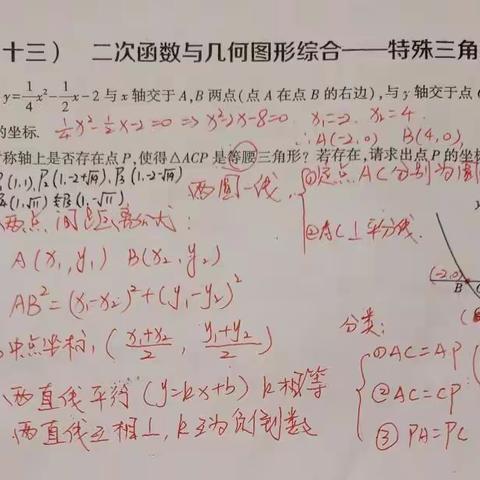 十三） 二次函数与几何图形综合——特殊三角
y=1/4x²-1/2x-2与x轴交于A,B两点(点A在点B的右边),与y轴交于点
的坐标. 1/4x²-1/2x-2=0 ⇒ x²-2x-8=0. x₁=-2. x₂=4.
∴A(-2,0) B(4,0)
称轴上是否存在点P,使得△ACP是等腰三角形？若存在,请求出点P的坐标
(1,1), P₂(1,-2+√19), P₃(1,-2-√19)
(1,√11) (1,-√11)
两圆一线
①定点 A C分别为圆
②AC⊥平分线.
两点间距离公式：
A(x₁,y₁) B(x₂,y₂)
AB²=(x₁-x₂)²+(y₁-y₂)²
中点坐标, (x₁+x₂/2 , y₁+y₂/2)
两直线平行 (y=kx+b) k相等
两直线互相⊥, k互为负倒数
(-2,0)
B
分类：
①AC=AP
②AC=CP
③PA=PC